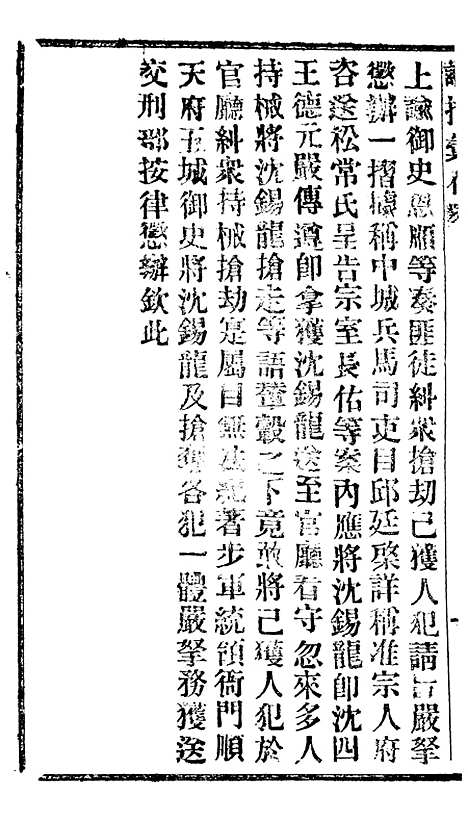 上諭御史恩雁等奏匪徒糾衆搶劫已獲人犯請旨嚴拏
懲辦一摺據稱中城兵馬司吏目邱廷棨詳稱准宗人府
咨送松常氏呈告宗室長佑等案內應將沈錫龍卽沈四
王德元嚴傳遵卽拿獲沈錫龍送至官廳看守忽來多人
持械將沈錫龍搶走等語輦轂之下竟敢將已獲人犯於
官廳糾衆持械搶劫寔屬目無法紀著步軍統領衙門順
天府五城御史將沈錫龍及搶奪各犯一體嚴拏務獲送
交刑部按律懲辦欽此